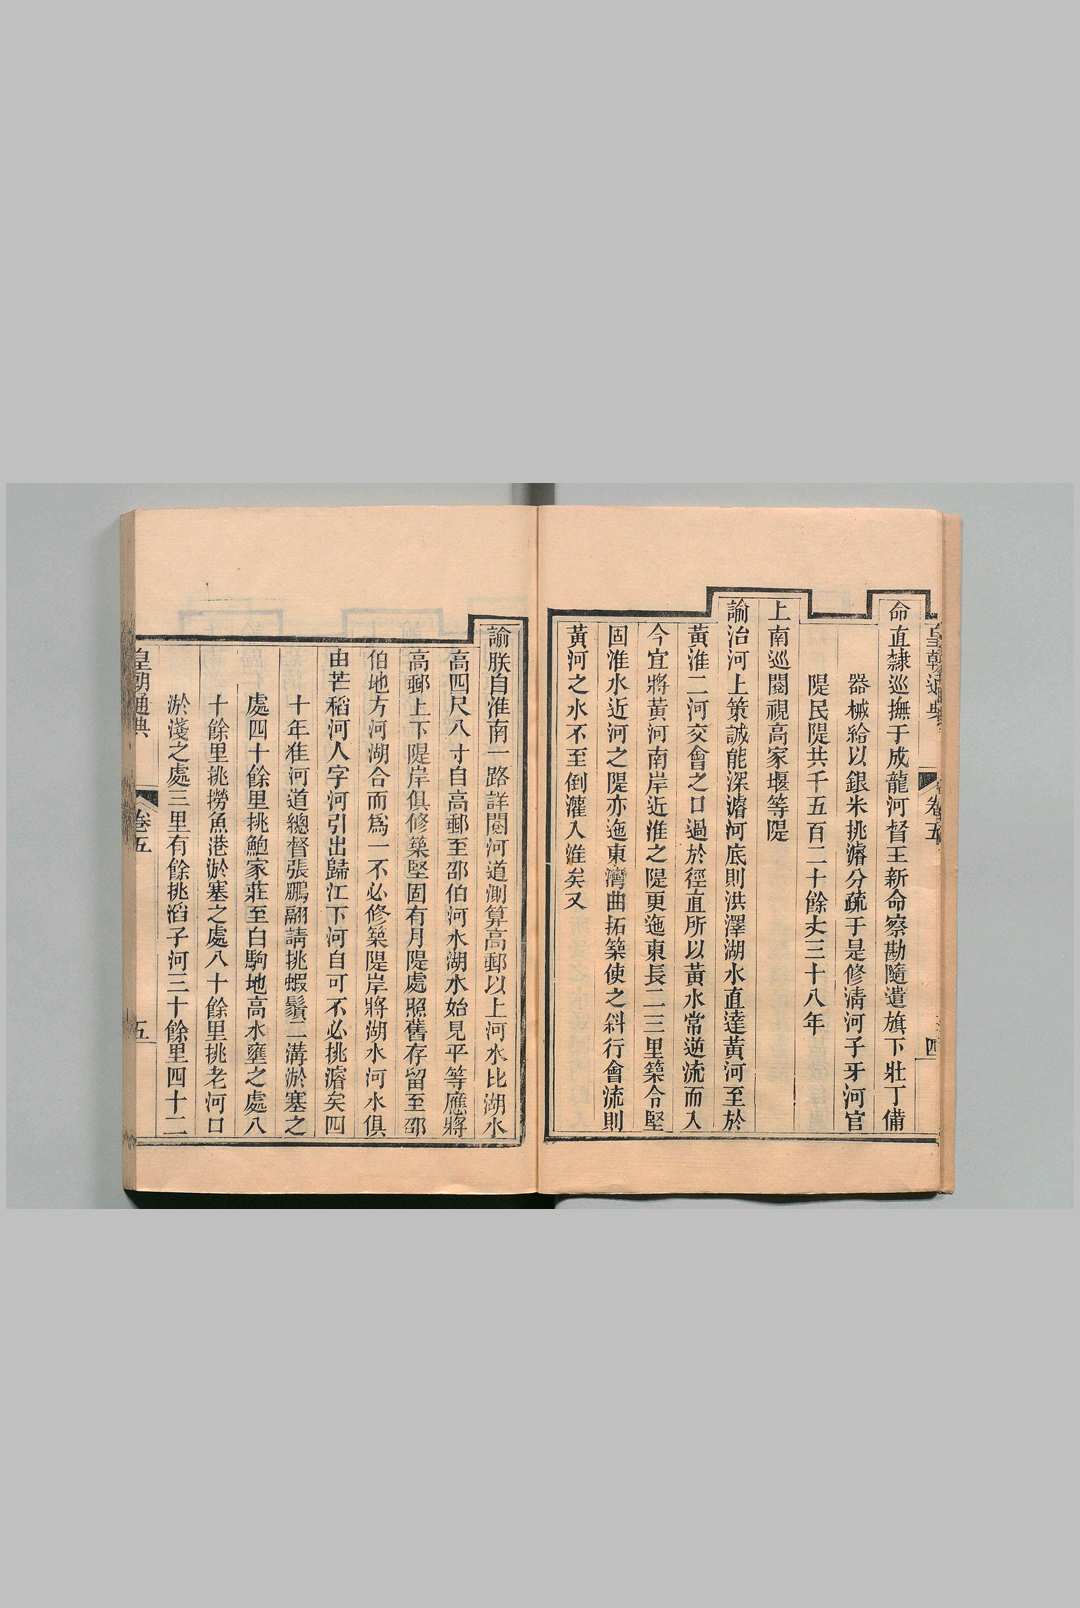 皇朝通典
卷五
四
命直隸巡撫于成龍河督王新命察勘隨遣旗下壯丁備
器械給以銀米挑濬分疏于是修清河子牙河官
隄民隄共千五百二十餘丈三十八年
上南巡閱視高家堰等隄
諭治河上策誠能深濬河底則洪澤湖水直達黃河至於
黃淮二河交會之口過於徑直所以黃水常逆流而入
今宜將黃河南岸近淮之隄更迤東長二三里築令堅
固淮水近河之隄亦迤東灣曲拓築使之斜行會流則
黃河之水不至倒灌入淮矣又
諭朕自淮南一路詳閱河道測算高郵以上河水比湖水
高四尺八寸自高郵至邵伯河水湖水始見平等應將
高郵上下隄岸俱修築堅固有月隄處照舊存留至邵
伯地方河湖合而為一不必修築隄岸將湖水河水俱
由芒稻河人字河引出歸江下河自可不必挑濬矣四
十年淮河道總督張鵬翮請挑蝦鬚二溝淤塞之
處四十餘里挑鮑家莊至白駒地高水壅之處八
十餘里挑撈魚港淤塞之處八十餘里挑老河口
淤淺之處三里有餘挑滔子河三十餘里四十二
皇朝通典
卷五
五